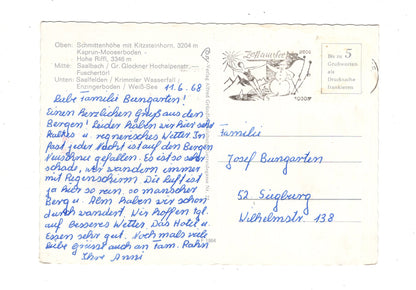 Oben: Schmittenhöhe mit Kitzsteinhorn, 3204 m
Kaprun-Mooserboden -
Hohe Riffl, 3346 m
Mitte: Saalbach / Gr. Glockner Hochalpenstr. -
Fuschertörl
Unten: Saalfelden / Krimmler Wasserfall /
Enzingerboden / Weiß-See
11.6.68
Liebe Familie Bungarten!
Einen herzlichen Gruß aus den
Bergen! Leider haben wir hier sehr
kaltes u. regnerisches Wetter. In
fast jeder Nacht ist auf den Bergen
Neuschnee gefallen. Es ist so sehr
schade, wir wandern immer
mit Regenschirm. Die Luft ist
ja hier so rein. So mancher
Berg u. Alm haben wir schon
durch wandert. Wir hoffen tgl.
auf besseres Wetter. Das Hotel u.
Essen sehr gut. Nochmals viele
liebe Grüsse auch an Fam. Rahn
Ihre Anni
Zell am See
Bis zu 5
Grußworten
als
Drucksache
frankieren
Familie
Josef Bungarten
52 Siegburg
Wilhelmstr. 138